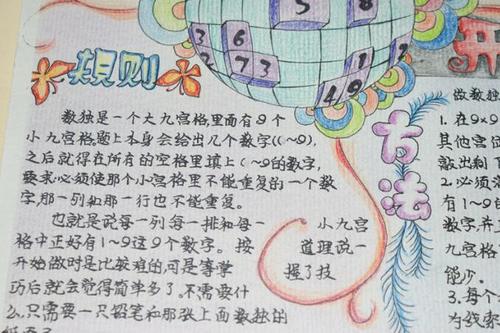 5 8
3 6
2 7 3 1
4 9
规则
数独是一个大九宫格里面有9个
小九宫格。题上本身会给出几个数字(1~9),
之后就得在所有的空格里填上1~9的数字,
要求必须使那个小宫格里不能重复的一个数
字,那一列和那一行也不能重复。
也就是说每一列每一排和每一 小九宫
格中正好有1~9这9个数字。按 道理说一
开始做时是比较难的,可是等掌 握了技
巧后就会觉得简单多了。不需要什
么,只需要一只铅笔和那张上面数独的
方法
开
做数独
1. 在9×9
其他宫位
敲出剩
2. 必须
有1~9
数字,并
九宫格
能少。
3. 每个
为线索